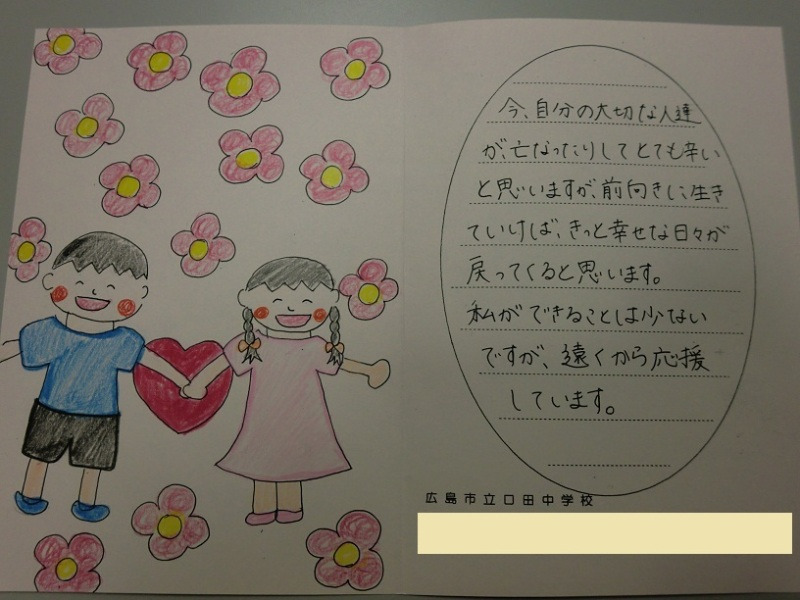 今、自分の大切な人達
が、亡なったりしてとても辛い
と思いますが、前向きに、生き
ていけば、きっと幸せな日々が
戻ってくると思います。
私ができることは少ない
ですが、遠くから応援
しています。
広島市立口田中学校